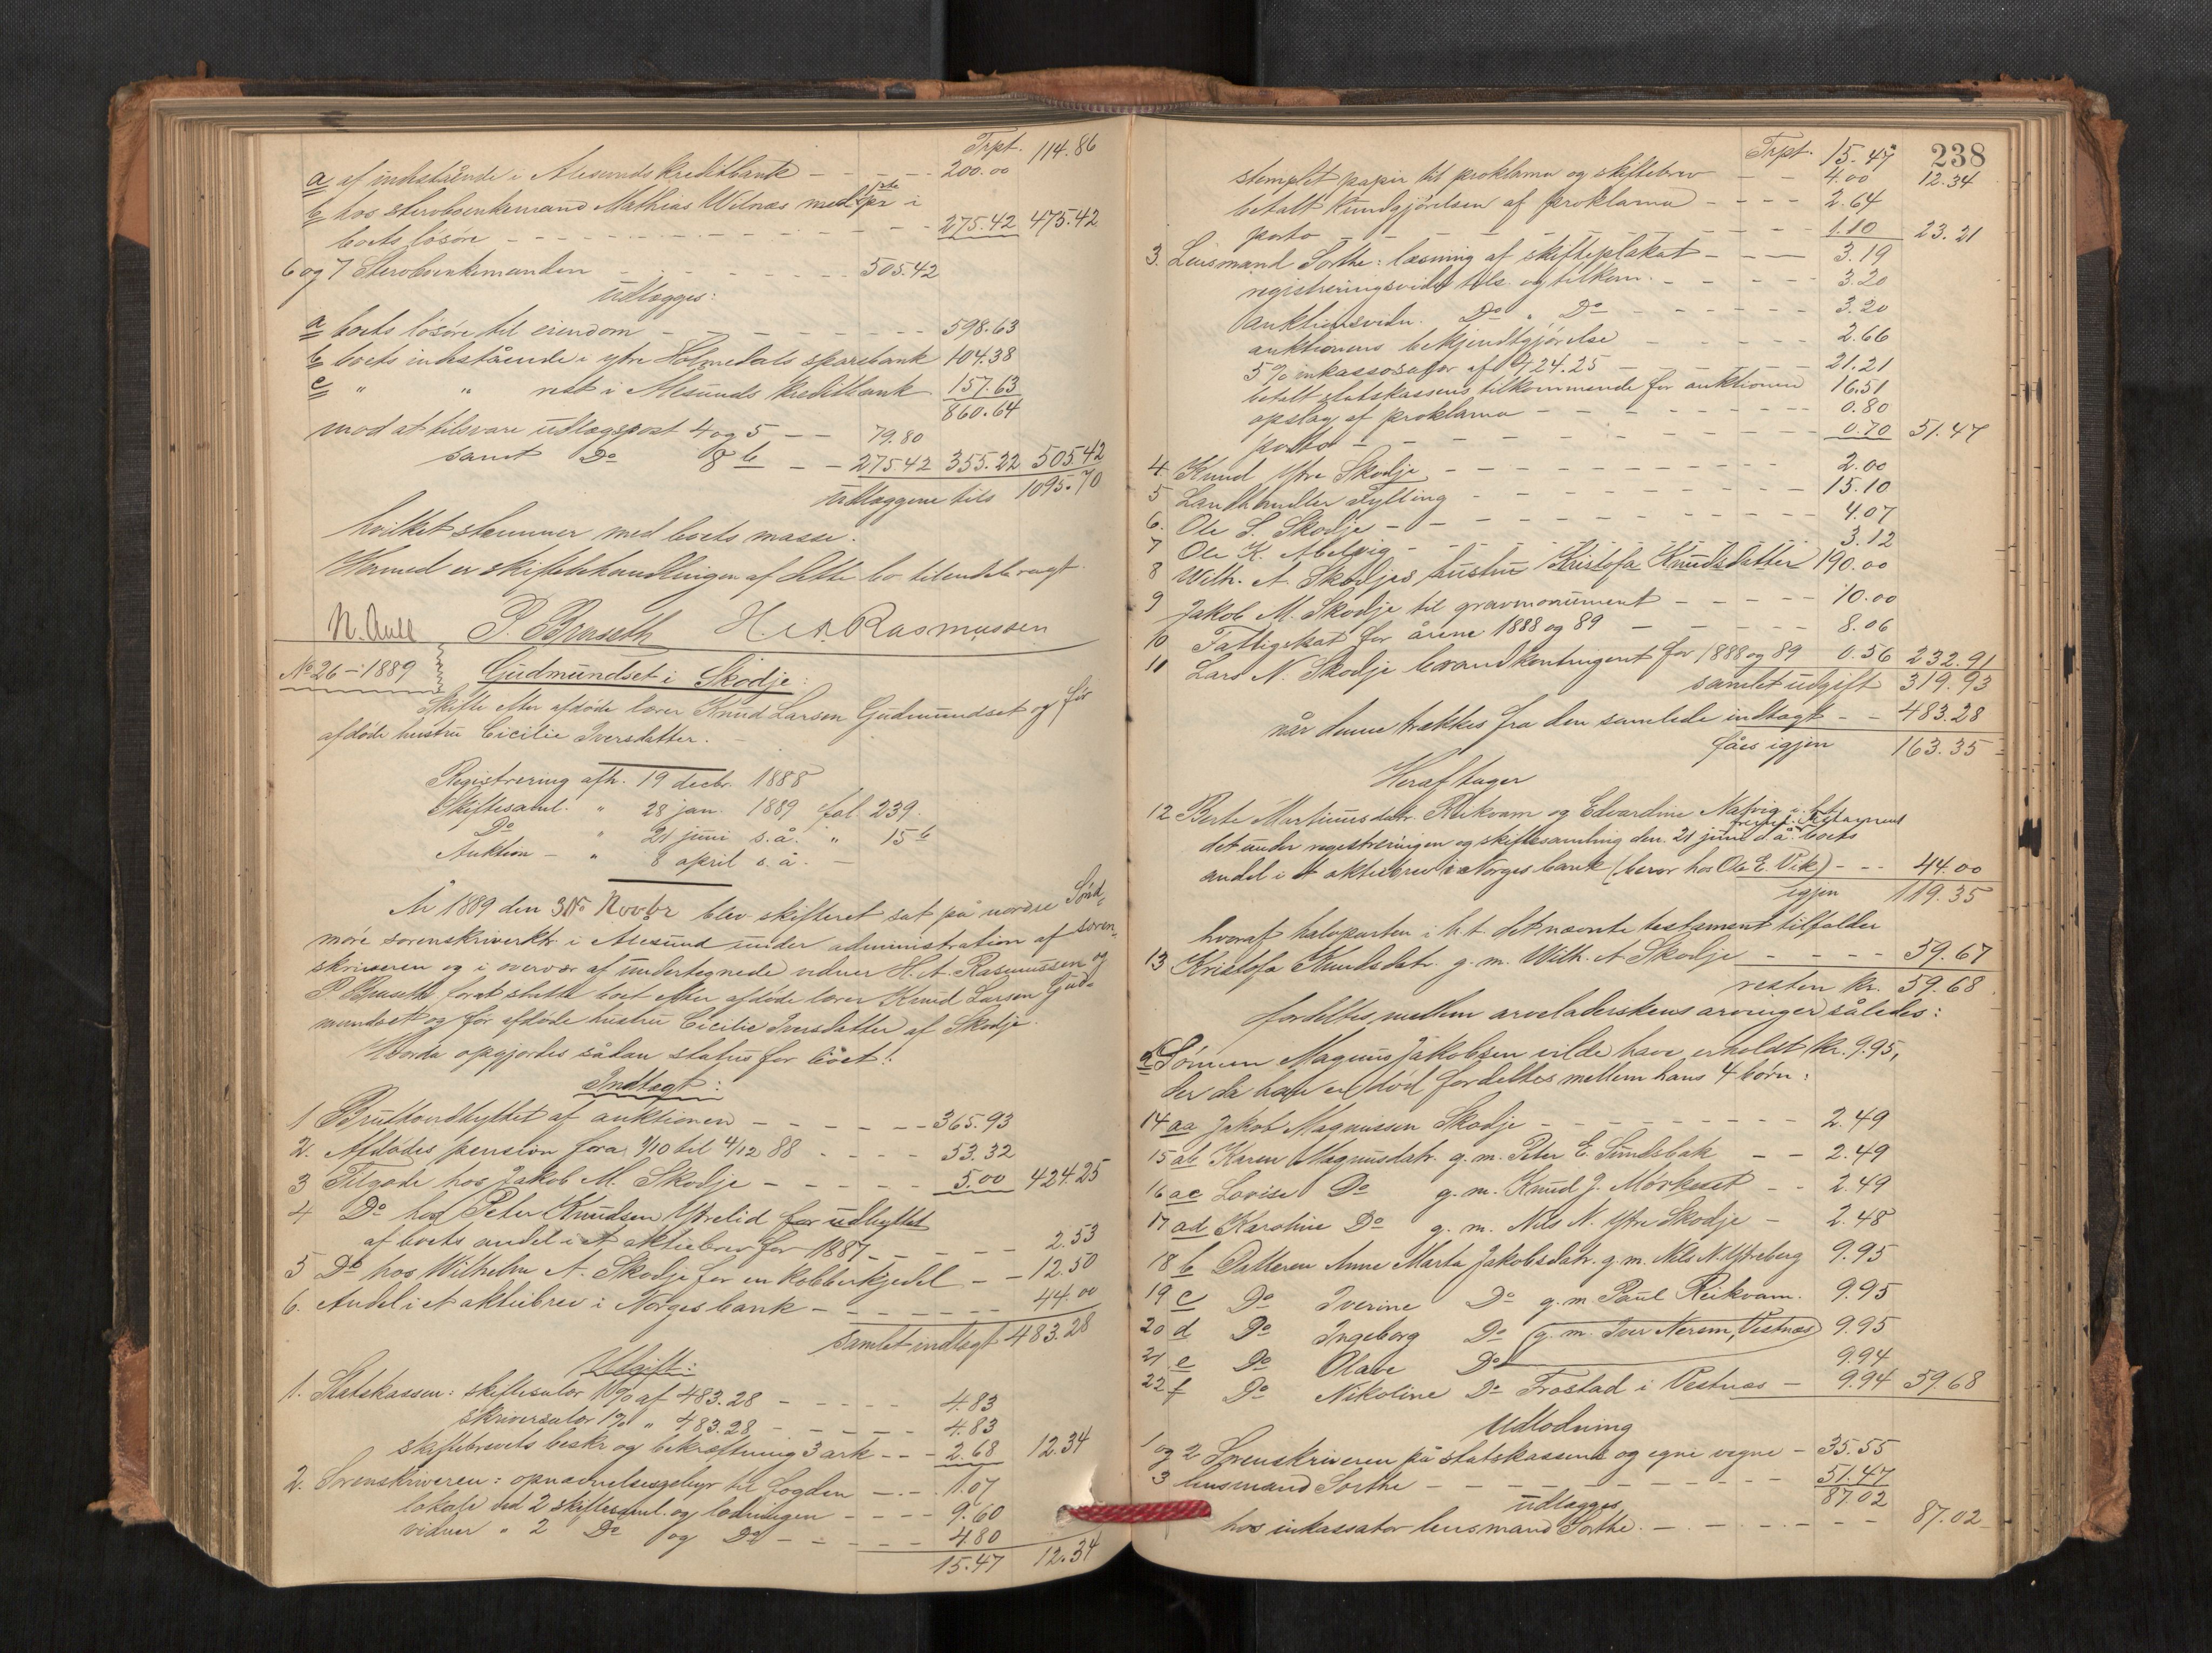 Trpt. 114.86
a af indestående i Alesunds kreditbank - - - - 200.00
b hos sterboenkemand Mathias Wilnæs med pr i
boets løsøre - - - - - - - - - - 275.42 475.42
6 og 7 Sterboenkemanden - - - - - - - 505.42
Udlægges:
a boets løsøre til eiendom - - - - - - - 598.63
b boets indestående i ytre Holmedals sparebank 104.38
c " " rest i Alesunds kreditbank 157.63
860.64
mod at tilsvare udlægspost 4 og 5 - - 79.80
samt Do 8 b - - 275.42 355.22 505.42
Udlæggene tils 1095.70
hvilket stemmer med boets masse.
Hermed er skiftebehandlingen af dette bo tilendebragt.
N. Aull P. Bruseth H. A. Rasmussen
No 26 - 1889 Gudmundset i Skodje:
Skifte efter afdøde lærer Knud Larsen Gudmundset og før
afdøde hustru Cicilie Iversdatter.
Registrering afh. 19 decbr. 1888
Skiftesaml. " 28 jan. 1889 fol. 239.
Do " 21 juni s.å. " 15 b
Auktion - " 8 april s.å. -
År 1889 den Novbr blev skifteret sat på nordre Sønd-
møre sorenskriverktr i Alesund under administration af soren-
skriveren og i overvær af undertegnede vidner H. A. Rasmussen og
P. Bruseth forat slutte boet efter afdøde lærer Knud Larsen Gud-
mundset og før afdøde hustru Cicilie Iversdatter af Skodje.
Hvorda opgjordes sådan status for boet:
Indtægt:
1 Bruttoudbyttet af auktionen - - - - - - 365.93
2. Afdødes pension fra 1/10 til 4/12 88 - - - - 53.32
3 Tilgode hos Jakob M. Skodje - - - - - 5.00 424.25
4 Do hos Peter Knudsen Ytrelid for udbyttet
af boets andel i et aktiebrev for 1887 - - - - - 2.53
5 Do hos Wilhelm A. Skodje for en kobberkjedel - - 12.50
6. Andel i et aktiebrev i Norges bank - - - - - - - 44.00
samlet indtægt 483.28
Udgift:
1. Statskassen: skiftesalær 1% af 483.28 - - - - - 4.83
skriversalær 1% " 483.28 - - - - - - 4.83
skiftebrevets beskr og bekræftning 3 ark - - - 2.68 12.34
2. Sorenskriveren: opnævnelsesgebyr til fogden - - - 11.07
lokale ved 2 skiftesaml. og lodningen - - - - 9.60
vidner " 2 Do og Do - - - - - 4.80
15.47 12.34
Trpt. 15.47 238
12.34
stemplet papir til proklama og skiftebrev - - 4.00
betalt kundgjørelsen af proklama - - - - 2.64
porto - - - - - - - - - - 1.10 23.21
3. Lensmand Sorthe: læsning af skifteplakat - - - 3.19
registreringsvidn tils. og tilkom. - - - - - 3.20
auktionsvidn. Do " Do - - - - - - 3.20
auktionens bekjendtgjørelse - - - - - 2.66
5% inkassosalær af 424.25 - - - - - - 21.21
betalt statskassens tilkommende for auktionen 16.51
opslag af proklama - - - - - - - - 0.80
porto - - - - - - - - - - 0.70 51.47
4 Knud Ytre Skodje - - - - - - - - - - 2.00
5 Landhandler Fylling - - - - - - - - - 15.10
6. Ole S. Skodje - - - - - - - - - - - 4.07
7 Ole K. - - - - - - - - - - - 3.12
8 Wilh. A. Skodjes hustru Kristofa Knudsdatter 190.00
9 Jakob M. Skodje til gravmonument - - - - - 10.00
10 Fattigskat for årene 1888 og 89 - - - - - 8.06
11 Lars N. Skodje brandkontingent for 1888 og 89 0.56 232.91
samlet udgift 319.93
når denne trækkes fra den samlede indtægt - - 483.28
fåes igjen 163.35
Heraf tager
12 Berte Martinusdatr. Reikvam og Edvardine Natvig i h.t. testament
det under registreringen og skiftesamling den 21 juni d.å. boets
andel i et aktiebrev i Norges bank (beror hos Ole E. Vik) - - - 44.00
igjen 119.35
hvoraf halvparten i h.t. det nævnte testament tilfalder
13 Kristofa Knudsdatr. g.m. Wilh. A Skodje - - - - - 59.67
resten kr. 59.68
fordeltes mellem arveladerskens arvinger således:
a Sønnen Magnus Jakobsen vilde have erholdt kr. 9.95,
der da han er død fordeltes mellem hans 4 børn:
14 aa Jakob Magnussen Skodje - - - - - - - - 2.49
15 ab Karen Magnusdatr. g.m. Peter E. Sundsbak - - 2.49
16 ac Lovise Do g.m. Knud J. Mørkeset - - 2.49
17 ad Karoline Do g.m. Nils N. Ytre Skodje - 2.48
18 b Datteren Anne Marta Jakobsdatr. g.m. Nils N. Ytreberg 9.95
19 c Do Iverine Do g.m. Paul Reikvam. 9.95
20 d Do Ingeborg Do (g.m. Iver Nerem, Vestnæs) 9.95
21 e Do Olave Do 9.94
22 f Do Nikoline Do Frostad i Vestnæs - 9.94 59.68
Udlodning
1 og 2 Sorenskriveren på statskassens og egne vegne - 35.55
3 lensmand Sorthe - - - - - - - - 51.47
87.02
udlægges
hos inkassator lensmand Sorthe. - - - - - - - 87.02